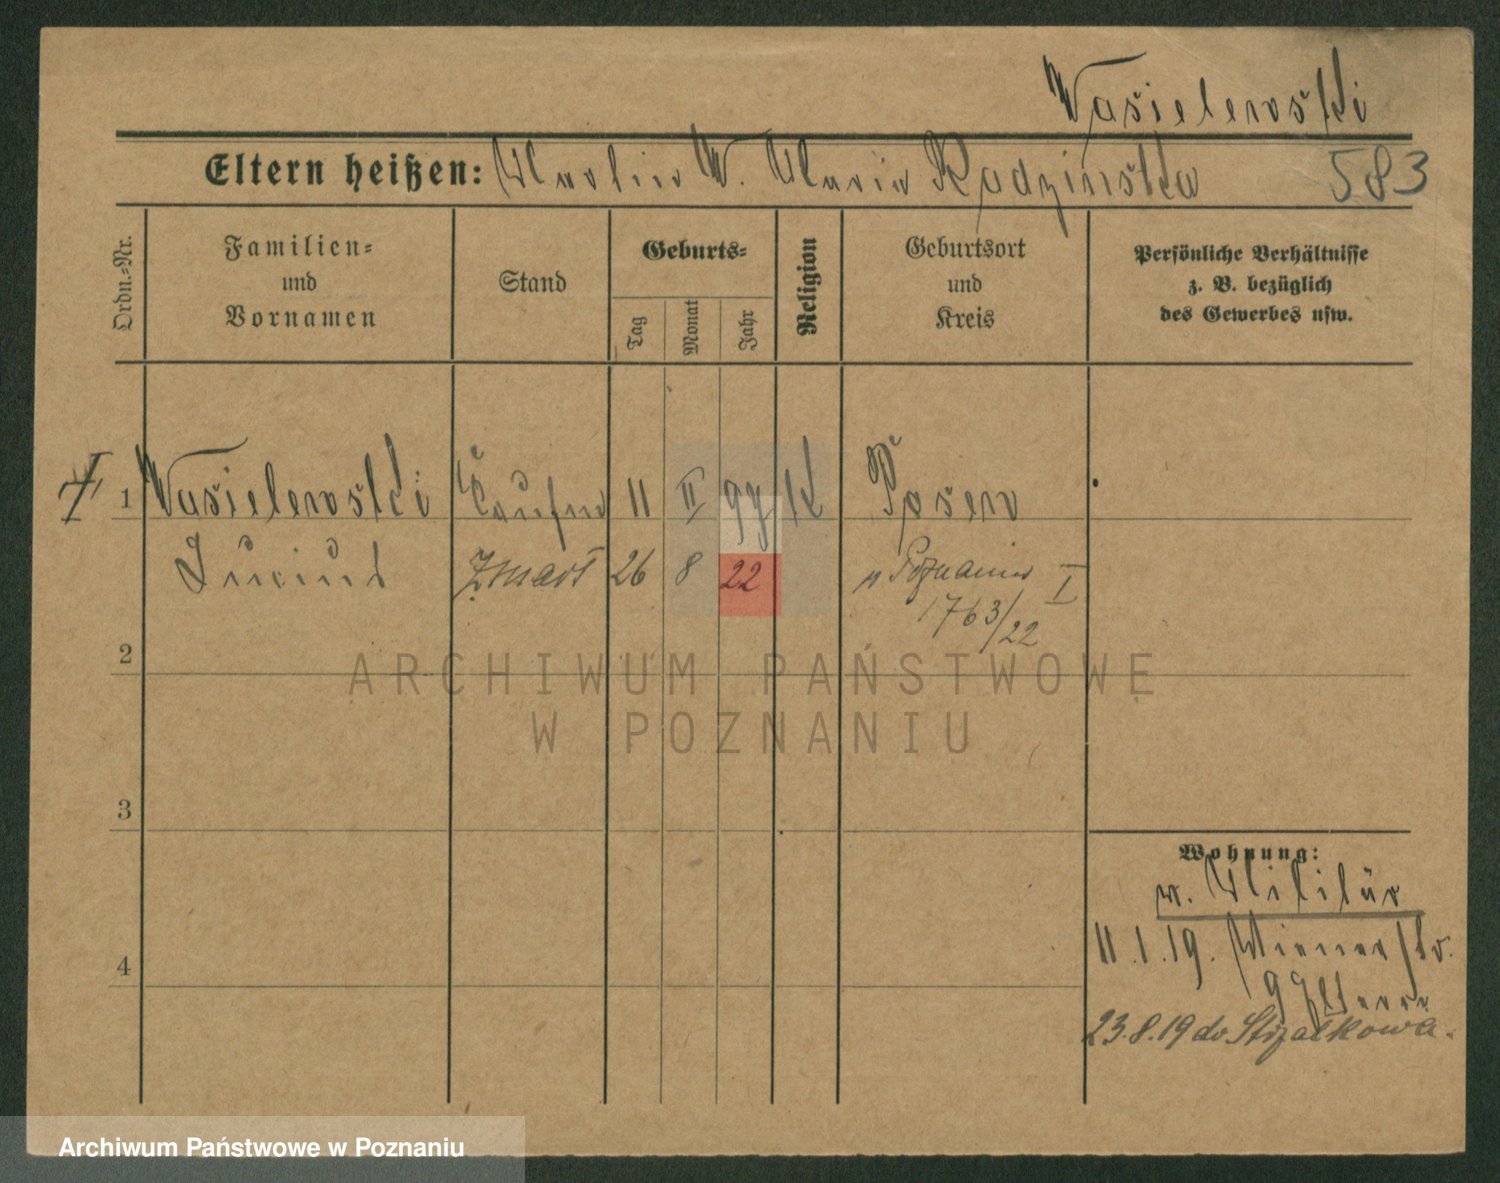 Wasielewski
Eltern heißen: Martin W. Maria Radzinska 583
Ordn.-Nr.
Familien-
und
Vornamen
Stand
Geburts-
Tag
Monat
Jahr
Religion
Geburtsort
und
Kreis
Persönliche Verhältnisse
z. B. bezüglich
des Gewerbes usw.
1 Wasielewski Kaufm 11 II 97 K Posen
zmarł 26 8 22 w Poznaniu I
1763/22
2
ARCHIWUM PAŃSTWOWE
W POZNANIU
3
Wohnung:
v. Militär
11.1.19. Wienerstr.
9 Eltern
4
23.8.19 do Strzałkowa.
Archiwum Państwowe w Poznaniu